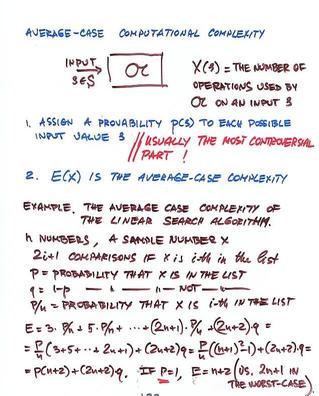 AVERAGE-CASE COMPUTATIONAL COMPLEXITY
INPUT
s∈S
𝒪𝓁
X(s) = THE NUMBER OF
OPERATIONS USED BY
ON AN INPUT s
1. ASSIGN A PROVABILITY p(s) TO EACH POSSIBLE
INPUT VALUE s // USUALLY THE MOST CONTROVERSIAL
PART !
2. E(X) IS THE AVERAGE-CASE COMPLEXITY
EXAMPLE. THE AVERAGE CASE COMPLEXITY OF
THE LINEAR SEARCH ALGORITHM.
n NUMBERS, A SAMPLE NUMBER X
2i+1 COMPARISONS IF X is i-th in the list
P = PROBABILITY THAT X IS IN THE LIST
q = 1-p — " — " — NOT — " —
P/n = PROBABILITY THAT X IS i-th IN THE LIST
E = 3·P/n + 5·P/n + ··· + (2n+1)·P/n + (2n+2)q =
= P/n (3+5+···+2n+1) + (2n+2)q = P/n ((n+1)²-1) + (2n+2)·q =
= p(n+2) + (2n+2)q. IF P=1, E=n+2 (vs. 2n+1 IN
THE WORST-CASE)